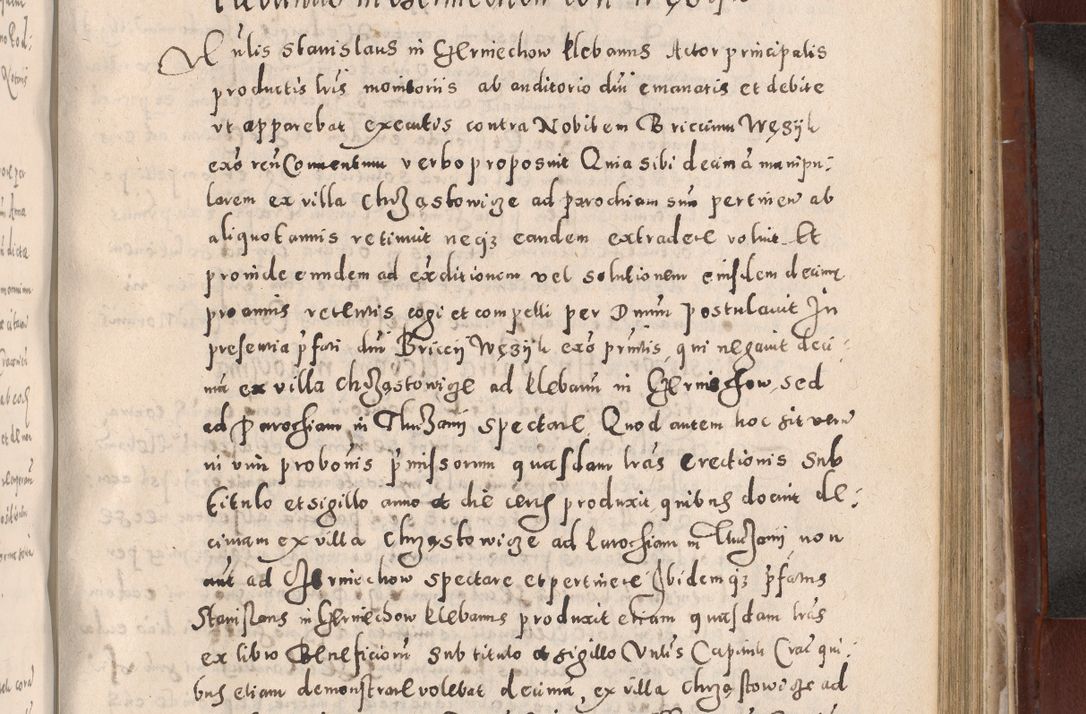 Stanislaus in Czerniechow klebanus Actor principalis
productis lris monitoriis ab auditorio dni emanatis et debite
vt apparebat executis contra Nobilem Briccium Węzyk
exõ reũ Conuentum verbo proposuit Quia sibi decimã manipu:
larem ex villa Chrząstowicze ad parochiam suã pertinen ab
aliquot annis retinuit neqz eandem extradere voluit Et
proinde eundem ad exditionem vel solutionem eiusdem decimę
pro annis retentis cogi et compelli per Dnum postulauit In
presentia p̃fati dni Briccij Węzijk exõ prñtis, qui negauit deci:
mã ex villa Chrząstowicze ad klebanũ in Czerniechow, sed
ad Parochiam in Tluczanij spectare Quod autem hoc sit verũ
in vim probonis p̃missorum quasdam lras erectionis sub
titulo et sigillo anno et die certis produxit, quibus docuit de:
cimam ex villa Chrząstowicze ad parochiam in Tluczanij non
aut ad Czerniechow spectare et pertinere Ibidemqz p̃fatus
Stanislaus in Czerniechow klebanus produxit etiam quasdam lras
ex libro Beneficiorũ sub titulo et sigillo Vnlis Capituli Crac qui:
bus etiam demonstrare volebat decimã, ex villa Chrząstowicze ad